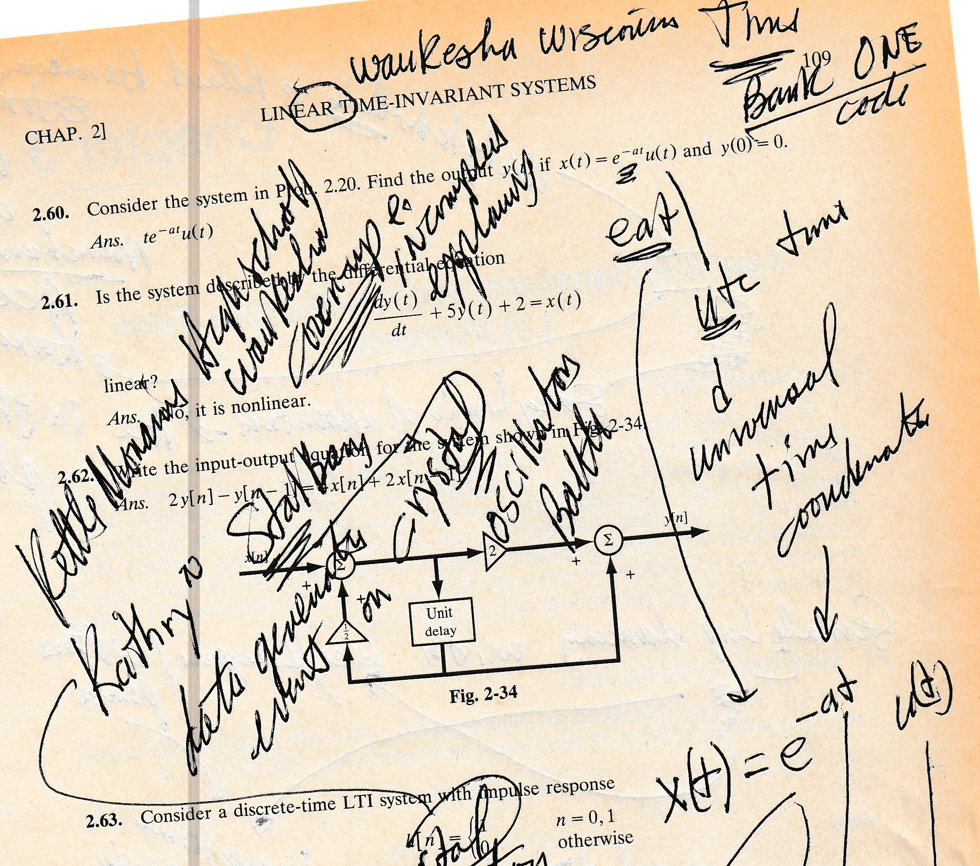 waukesha wisconsin Time
109
Bank ONE
code
LINEAR TIME-INVARIANT SYSTEMS
CHAP. 2]
2.60. Consider the system in Prob. 2.20. Find the output y(t) if x(t) = e^{-at}u(t) and y(0) = 0.
Ans. te^{-at}u(t)
eat
time
utc
universal
time
coordenate
2.61. Is the system described by the differential equation
dy(t)/dt + 5y(t) + 2 = x(t)
linear?
Ans. No, it is nonlinear.
Kettle Moraine High School
waukesha
cover-up is incomplete
explains
2.62. Write the input-output equation for the system shown in Fig. 2-34.
Ans. 2y[n] − y[n − 1] = 4x[n] + 2x[n − 1]
crystal oscillators
Kathryn
data
events on
x[n]
Σ
+
+
2
+
Σ
y[n]
+
1/2
Unit
delay
Fig. 2-34
x(t) = e^{-at} u(t)
2.63. Consider a discrete-time LTI system with impulse response
h[n] = {1 n = 0, 1
0 otherwise